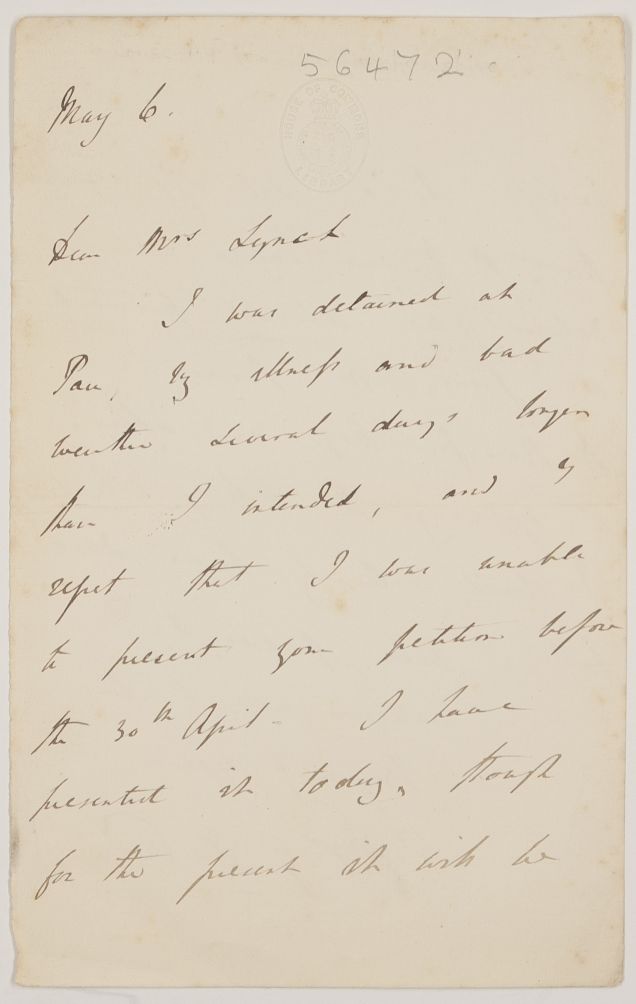 56472
HOUSE OF COMMONS
LIBRARY
May 6.
Dear Mrs Lynch
I was detained at
Pau, by illness and bad
weather several days longer
than I intended, and I
regret that I was unable
to present your petition before
the 30th April. I have
presented it today, though
for the present it will be